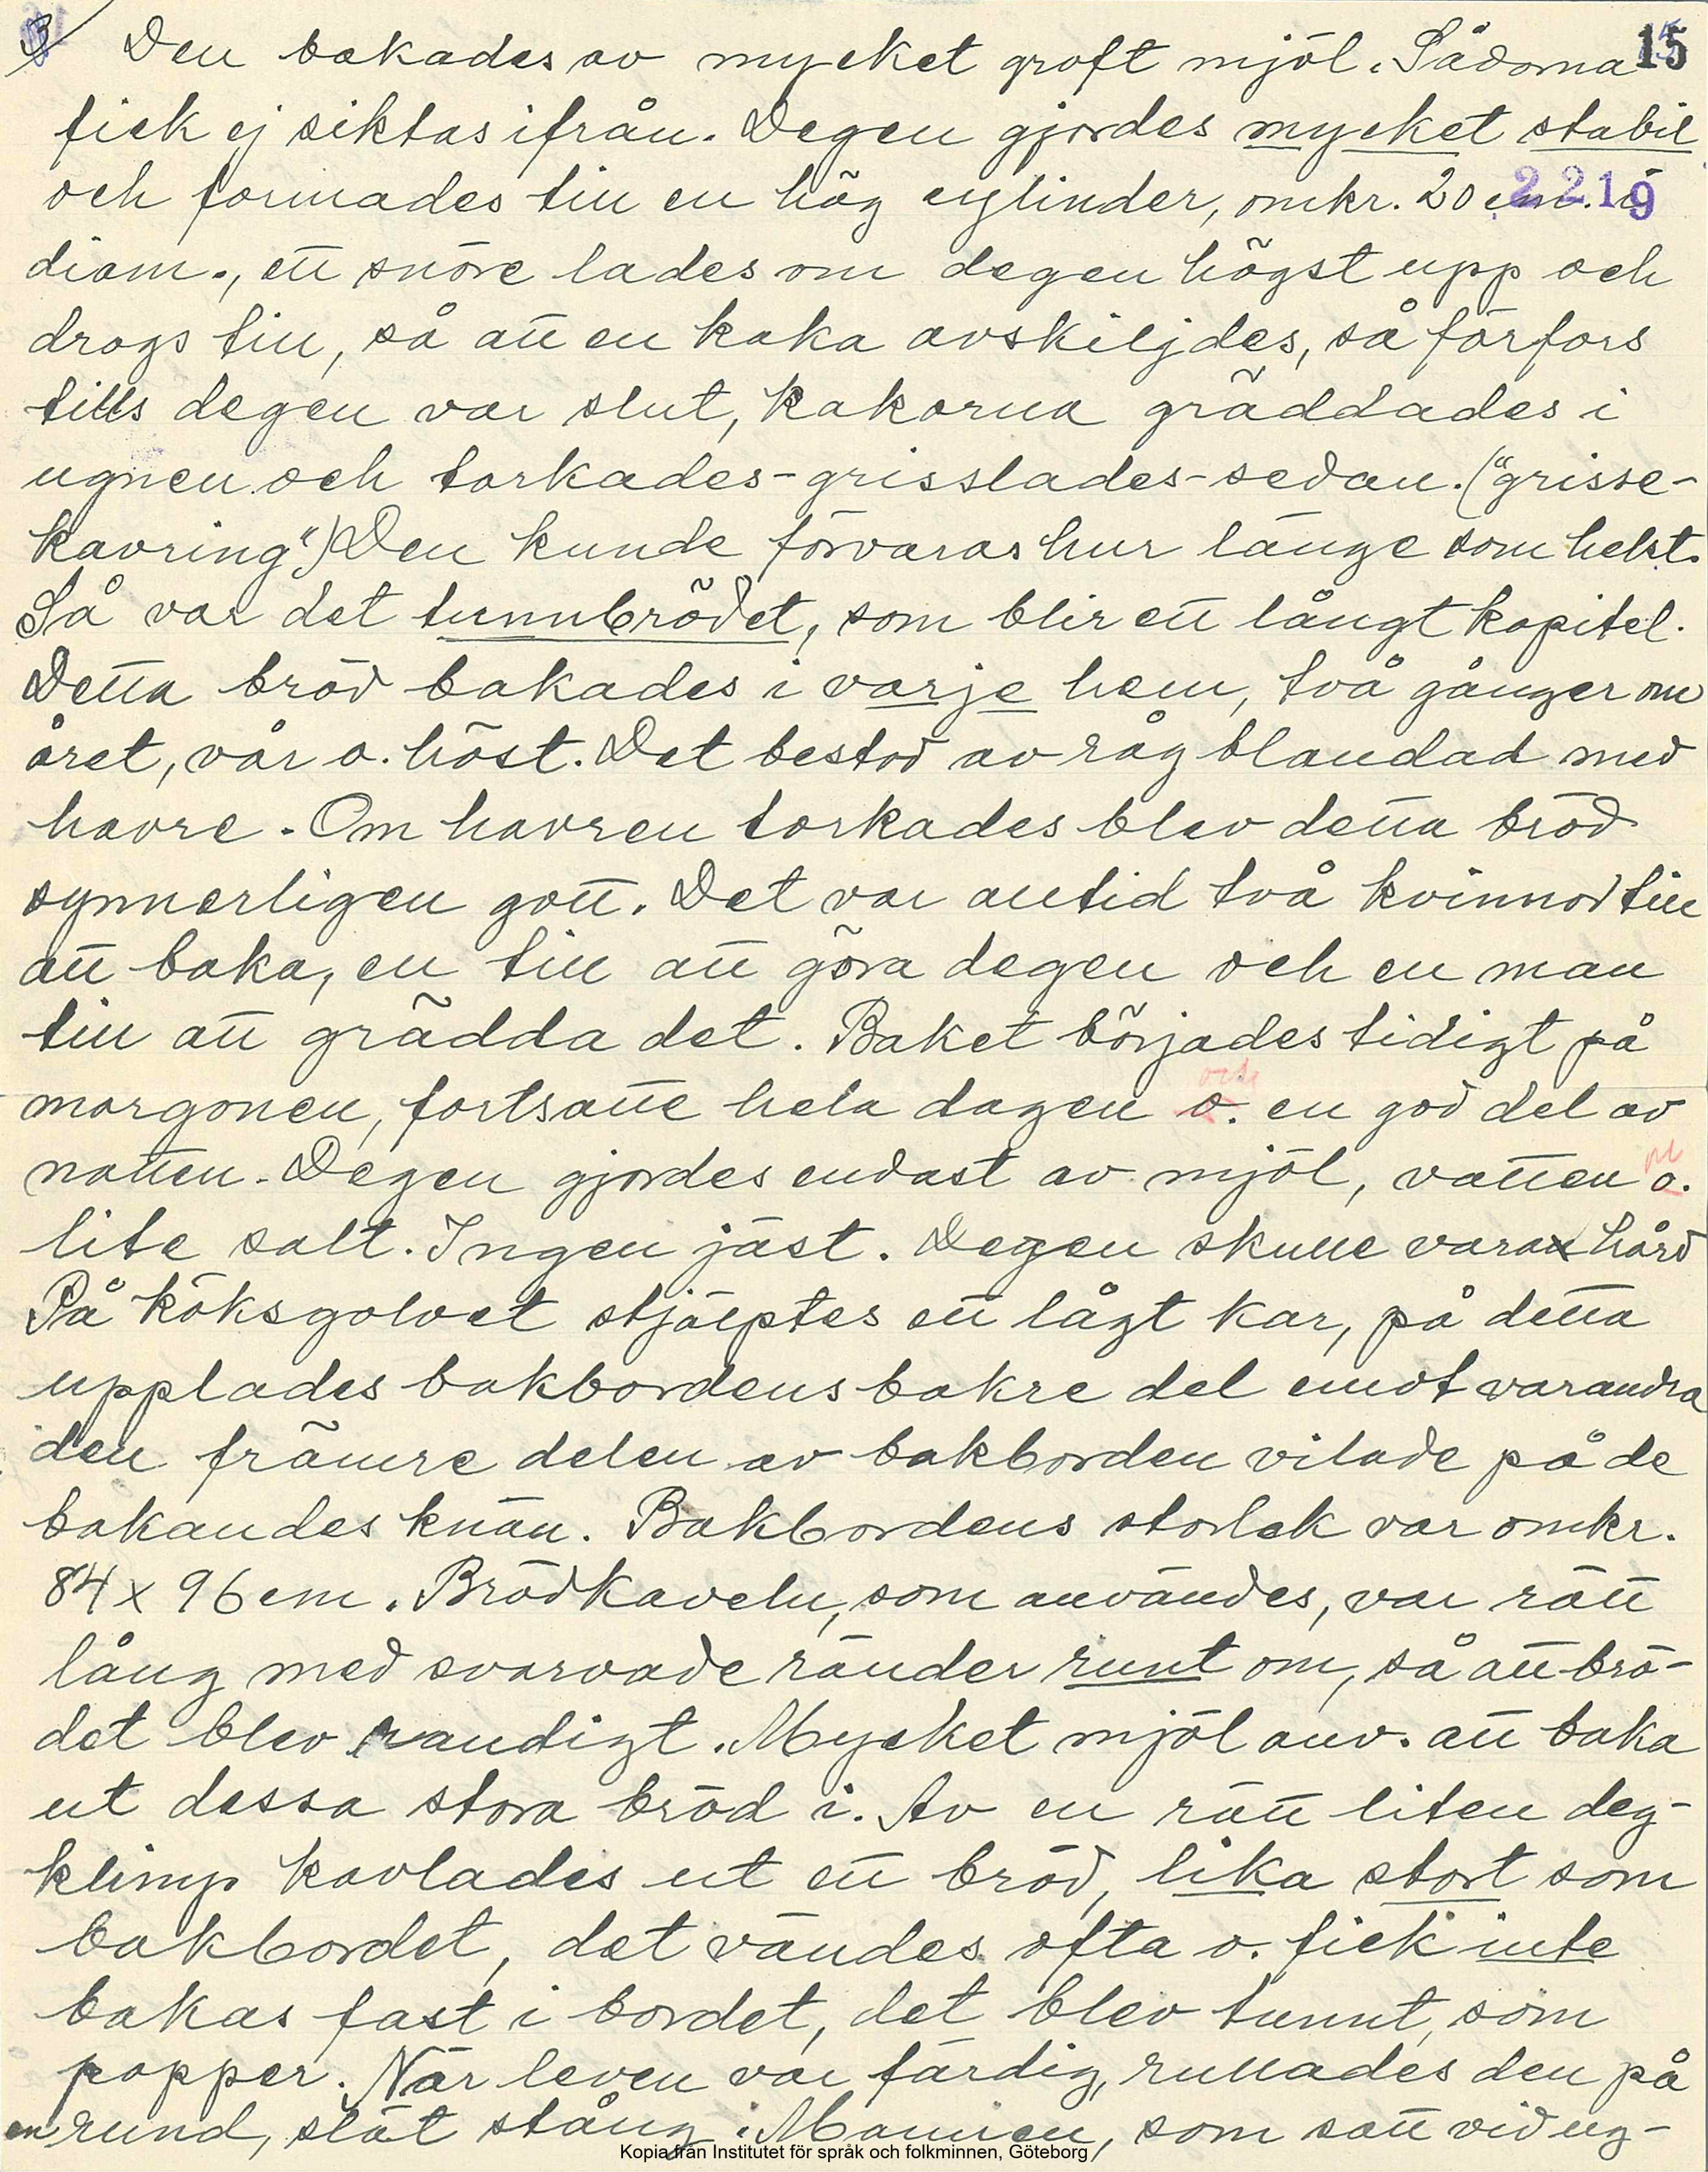 3/ Den bakades av mycket groft mjöl. Sådorna 15
fick ej siktas ifrån. Degen gjordes mycket stabil
och formades till en hög cylinder, omkr. 20 cm. i 2219
diam., ett snöre lades om degen högst upp och
drogs till, så att en kaka avskiljdes, så förfors
tills degen var slut, kakorna gräddades i
ugnen och torkades-grisslades-sedan. ("grisse-
kavring") Den kunde förvaras hur länge som helst.
Så var det tunnbrödet, som blir ett långt kapitel.
Detta bröd bakades i varje hem, två gånger om
året, vår o. höst. Det bestod av råg blandad med
havre. Om havren torkades blev detta bröd
synnerligen gott. Det var alltid två kvinnor till
att baka, en till att göra degen och en man
till att grädda det. Baket börjades tidigt på
och
morgonen, fortsatte hela dagen o. en god del av
natten. Degen gjordes endast av mjöl, vatten o.
lite salt. Ingen jäst. Degen skulle vara hård
På köksgolvet stjälptes ett lågt kar, på detta
upplades bakbordens bakre del emot varandra
den främre delen av bakborden vilade på de
bakandes knän. Bakbordens storlek var omkr.
84 x 96 cm. Brödkaveln, som användes, var rätt
lång med svarvade ränder runt om, så att brö-
det blev randigt. Mycket mjöl anv. att baka
ut dessa stora bröd i. Av en rätt liten deg-
klimp kavlades ut ett bröd, lika stort som
bakbordet, det vändes ofta o. fick inte
bakas fast i bordet, det blev tunnt, som
papper. När leven var färdig, rullades den på
en rund, slät stång. Mannen, som satt vid ug-
Kopia från Institutet för språk och folkminnen, Göteborg